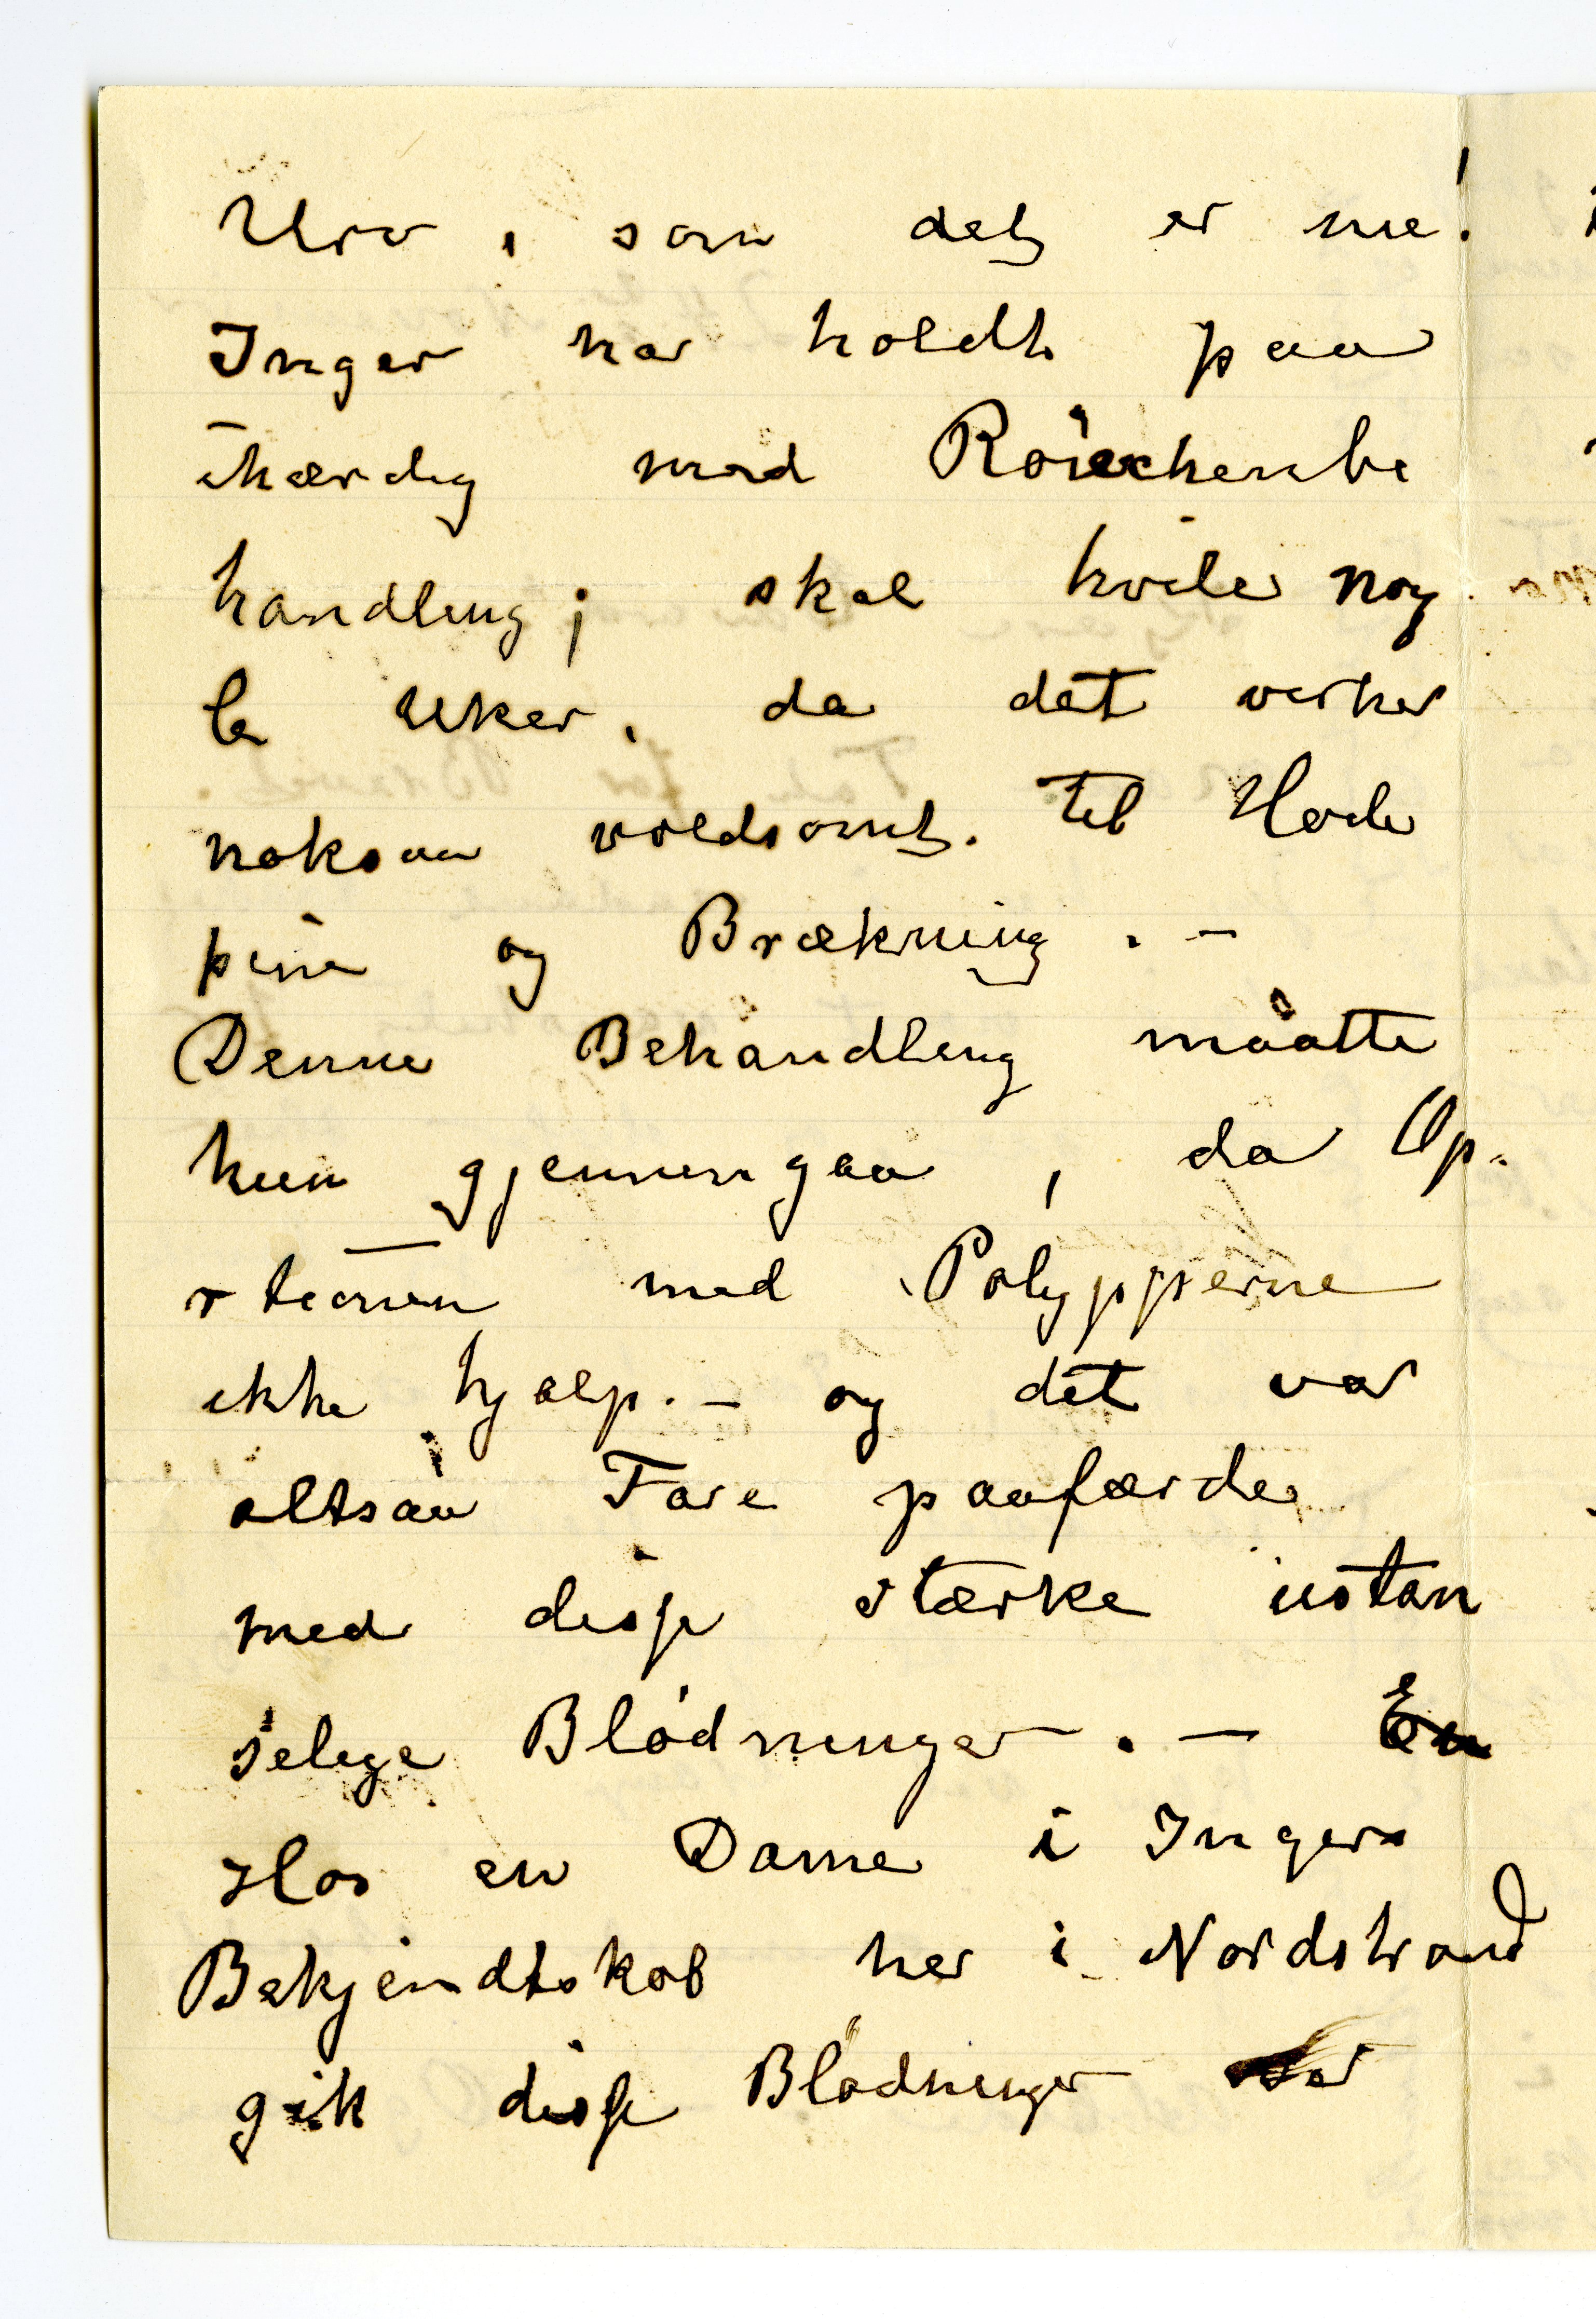 Uro, som det er nu!
Inger har holdt paa
ihærdig med Röuchenbe
handling; skal hvile nog
le Uker, da det virker
noksaa voldsomt. til Hode
pine og Brækning. –
Denne Behandling måatte
hun gjennemgaa, da Op.
rtionen med Polypperne
ikke hjalp. – og det var
altsaa Fare paafærde
med disse stærke ustan
selige Blødninger. –
Hos en Dame i Ingers
Bekjendtskab her i Nordstrand
gik disse Blødninger